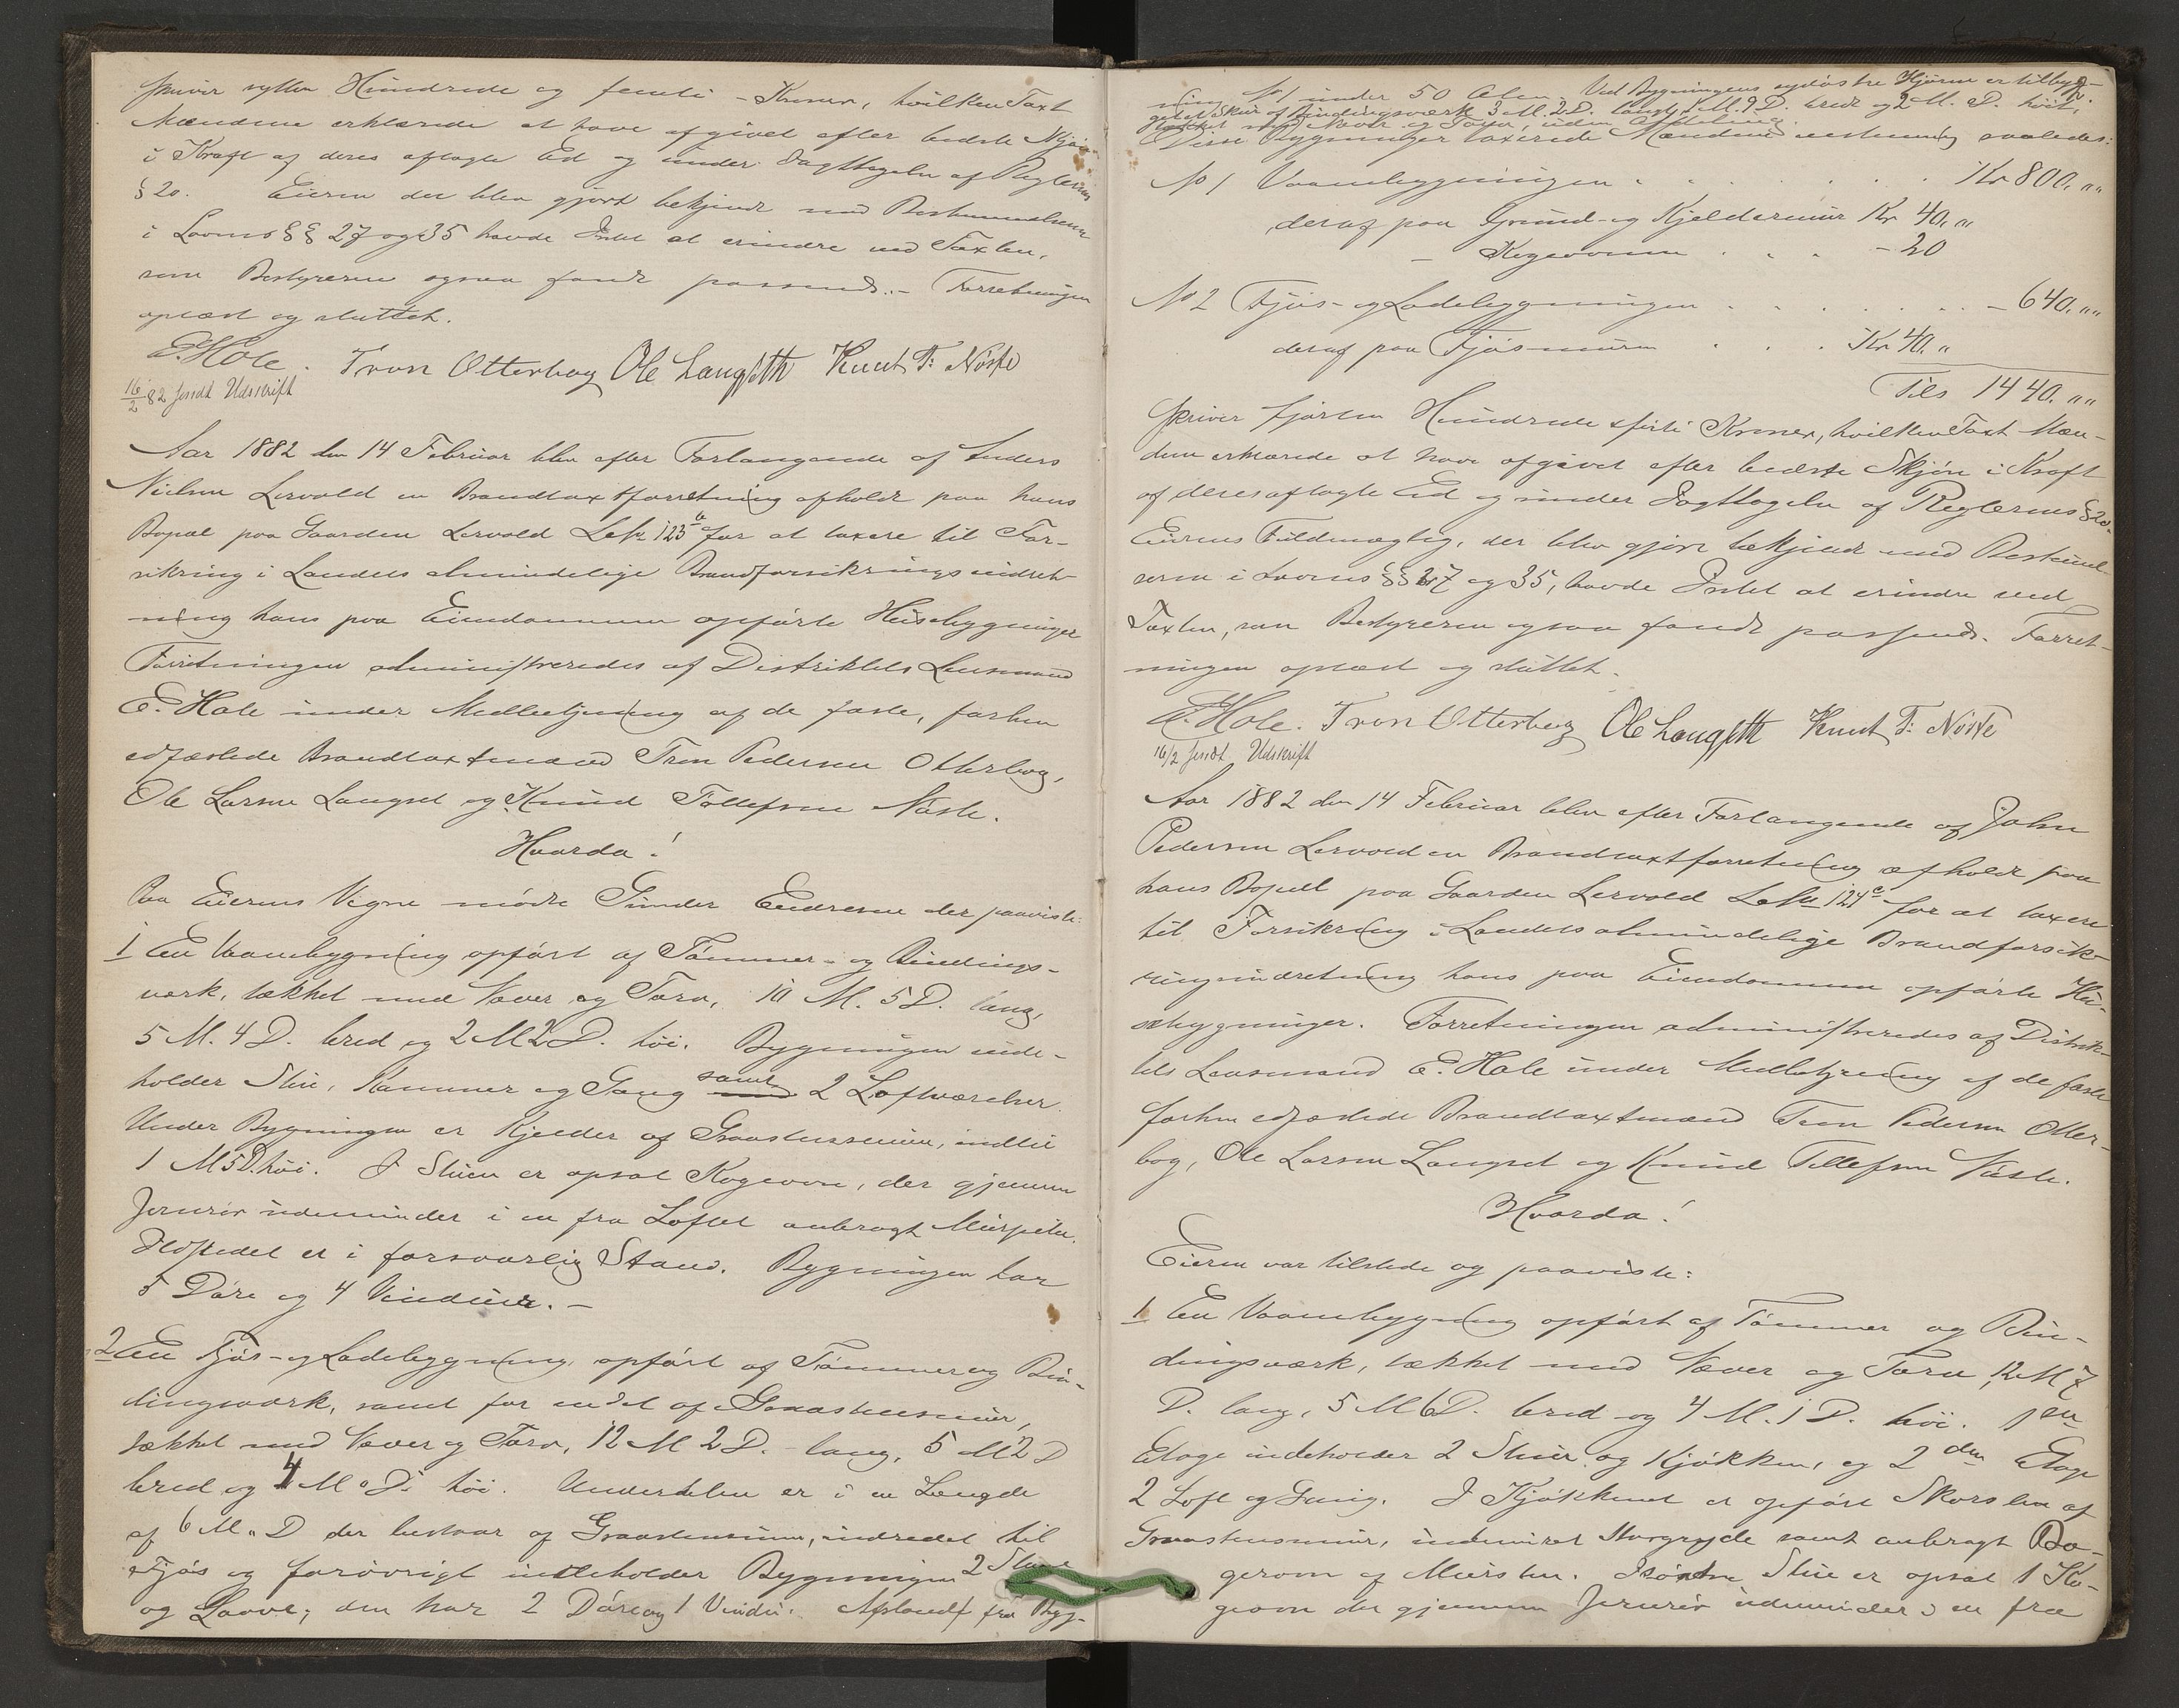 skriver sytten Hundrede og femti - Kroner, hvilken Taxt
Mændene erklærede at have afgivet efter bedste Skjøn
i Kraft af deres aflagte Ed og under Iagttagelse af Reglernes
§ 20. Eieren der blev gjort bekjendt med Bestemmelserne
i Lovens §§ 27 og 35 havde Intet at erindre ved Taxten,
som Bestyreren ogsaa fandt passende. - Forretningen
oplæst og sluttet.
E. Hole. Tron Otterbog Ole Langseth Knut T: Nøste
16/2 82 sendt Udskrift
Aar 1882 den 14 Februar blev efter Forlangende af Anders
Nielsen Lervold en Brandtaxtforretning afholdt paa hans
Bopæl paa Gaarden Lervold Løbn 123 b for at taxere til For-
sikring i Landets almindelige Brandforsikringsindret-
ning hans paa Eiendommen opførte Husebygninger
Forretningen administreredes af Distriktets Lensmand
E. Hole under Medbetjening af de faste, forhen
edfæstede Brandtaxtmænd Tron Pedersen Otterbog,
Ole Larsen Langset og Knud Tollefsen Nøste.
Hvorda!
Paa Eierens Vegne mødte Gunder Endresen der paaviste:
1 En Vaanebygning opført af Tømmer- og Bindings-
værk, tækket med Næver og Torv, 10 M. 5 D. lang,
5 M. 4 D. bred og 2 M 2 D. høi. Bygningen inde-
holder Stue, Kammer og Gang samt 2 Loftværelser.
Under Bygningen er Kjelder af Graastensmuur, indtil
1 M 5 D. høi. I Stuen er opsat Kogeovn, der gjennem
Jernrør udmunder i en fra Loftet anbragt Murpibe.
Ildstedet er i forsvarlig Stand. Bygningen har
5 Døre og 4 Vinduer. -
2 En Fjøs- og Ladebygning opført af Tømmer og Bin-
dingsværk, samt for en Del af Graastensmuur,
tækket med Næver og Torv, 12 M 2 D. lang, 5 M 2 D
bred og 4 M " D. høi. Underdelen er i en Længde
af 6 M " D der bestaar af Graastensmuur, indredet til
Fjøs og forøvrigt indeholder Bygningen 2
og Laave; den har 2 Døre og 1 Vindu. Afstand fra Byg-
ning No 1 under 50 Alen. Ved Bygningens sydøstre Hjørne er tilbyg-
get et Skur af Bindingsværk 3 M. 2 D. langt, 1 M. 9 D. bredt og 2 M. " D. høit,
tækket med Næver og Torv, uden Afdeling.
Disse Bygninger taxerede Mændene eenstemmig saaledes:
No 1 Vaanebygningen . . . . . . Kr 800. ""
deraf paa Grund- og Kjeldermuur Kr 40. "
- Kogeovnen . . . - 20
No 2 Fjøs- og Ladebygningen . . . . . . - 640. ""
deraf paa Fjøsmuren . . . Kr 40. "
Tils 1440. ""
skriver fjorten Hundrede firti Kroner, hvilken Taxt Mæn-
dene erklærede at have afgivet efter bedste Skjøn i Kraft
af deres aflagte Ed og under Iagttagelse af Reglernes § 20.
Eierens Fuldmægtig, der blev gjort bekjendt med Bestemmel-
serne i Lovens §§ 27 og 35, havde Intet at erindre ved
Taxten, som Bestyreren ogsaa fandt passende. Forret-
ningen oplæst og sluttet.
E. Hole. Tron Otterbog Ole Langseth Knut T: Nøste
16/2 sendt Udskrift
Aar 1882 den 14 Februar blev efter Forlangende af John
Pedersen Lervold en Brandtaxtforretning afholdt paa
hans Bopæl paa Gaarden Lervold Løbn 124 c for at taxere
til Forsikring i Landets almindelige Brandforsik-
ringsindretning hans paa Eiendommen opførte Hu-
sebygninger. Forretningen administreredes af Distrik-
tets Lensmand E. Hole under Medbetjening af de faste
forhen edfæstede Brandtaxtmænd Tron Pedersen Otter-
bog, Ole Larsen Langset og Knud Tollefsen Nøste.
Hvorda!
Eieren var tilstede og paaviste:
1 En Vaanebygning opført af Tømmer og Bin-
dingsværk, tækket med Næver og Torv, 12 M 7
D. lang, 5 M 6 D. bred og 4 M. 1 D. høi. 1ste
Etage indeholder 2 Stuer og Kjøkken, og 2 den Etage
2 Loft og Gang. I Kjøkkenet er opført Skorsten af
Graastensmuur, indmuret Storgryde samt anbragt Ba-
gerovn af Mursten. I søndre Stue er opsat 1 Ko-
geovn der gjennem Jernrør udmunder i en fra